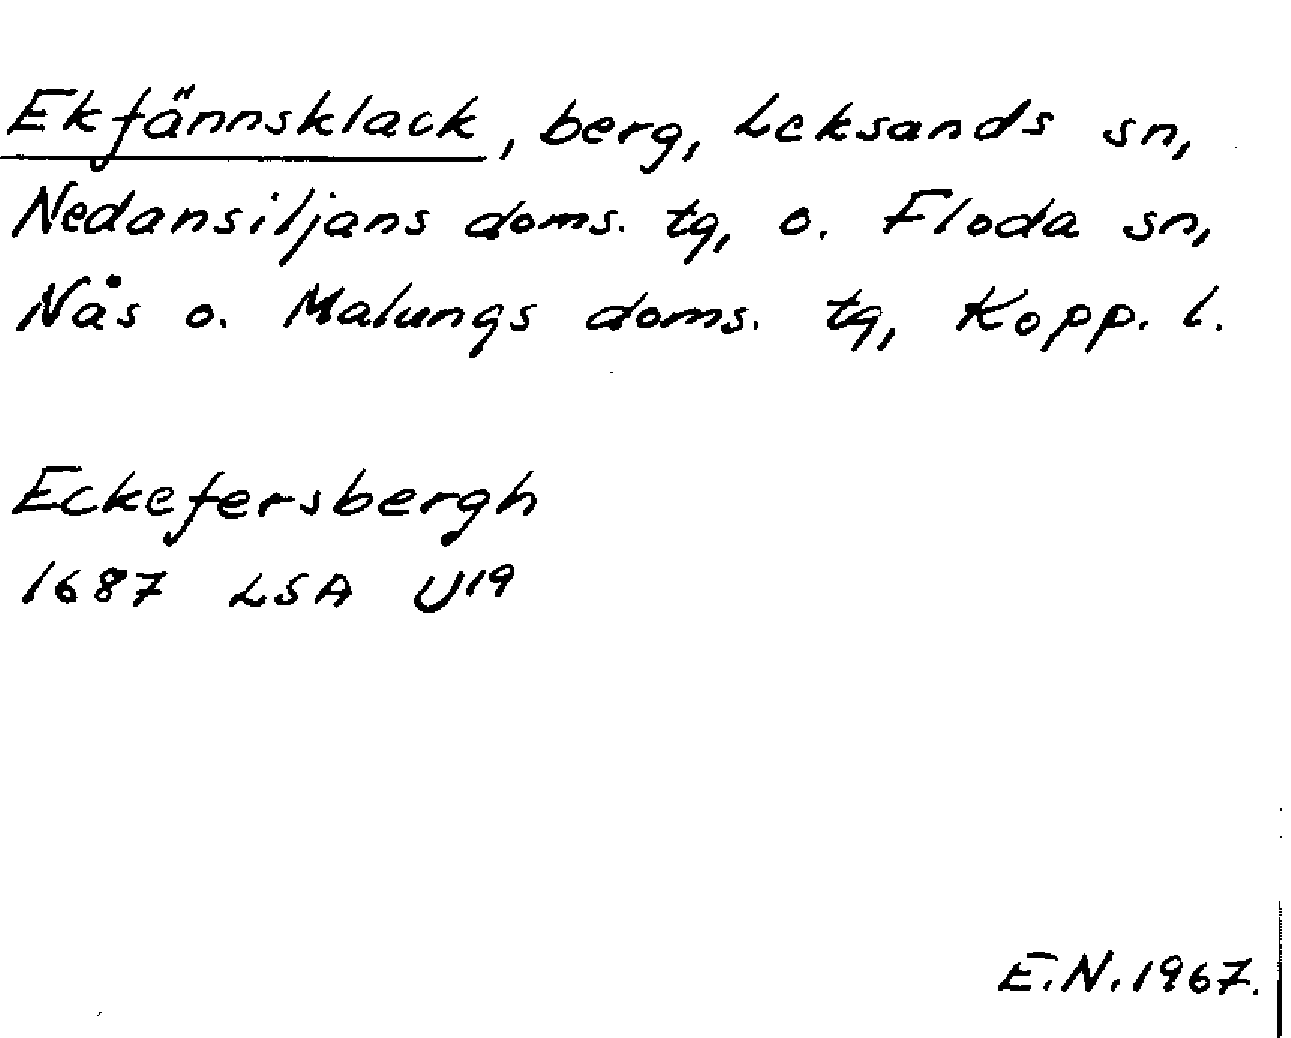 Ekfännsklack, berg, Leksands sn,
Nedansiljans doms. tg, o. Floda sn,
Nås o. Malungs doms. tg, Kopp. l.
Eckefersbergh
1687 LSA U19
E.N. 1967.